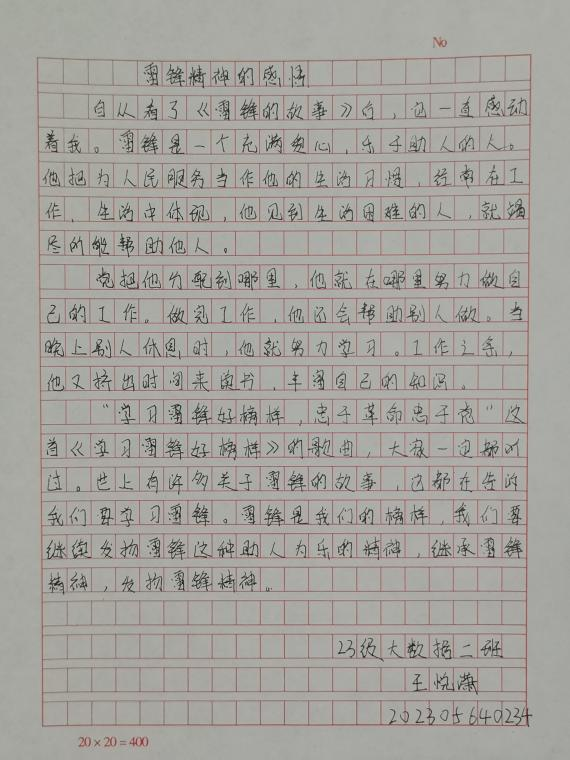 No
雷锋精神的感悟
自从看了《雷锋的故事》后，他一直感动
着我。雷锋是一个充满爱心，乐于助人的人。
他把为人民服务当作他的生活习惯，经常在工
作，生活中体现，他见到生活困难的人，就竭
尽所能帮助他人。
党把他分配到哪里，他就在哪里努力做自
己的工作。做完工作，他还会帮助别人做。当
晚上别人休息时，他就努力学习。工作之余，
他又挤出时间来读书，丰富自己的知识。
“学习雷锋好榜样，忠于革命忠于党”这
首《学习雷锋好榜样》的歌曲，大家一定都听
过。世上有许多关于雷锋的故事，它都在告诉
我们要学习雷锋。雷锋是我们的榜样，我们要
继续发扬雷锋这种助人为乐的精神，继承雷锋
精神，发扬雷锋精神。
23级大数据二班
王悦潇
202305640234
20×20=400